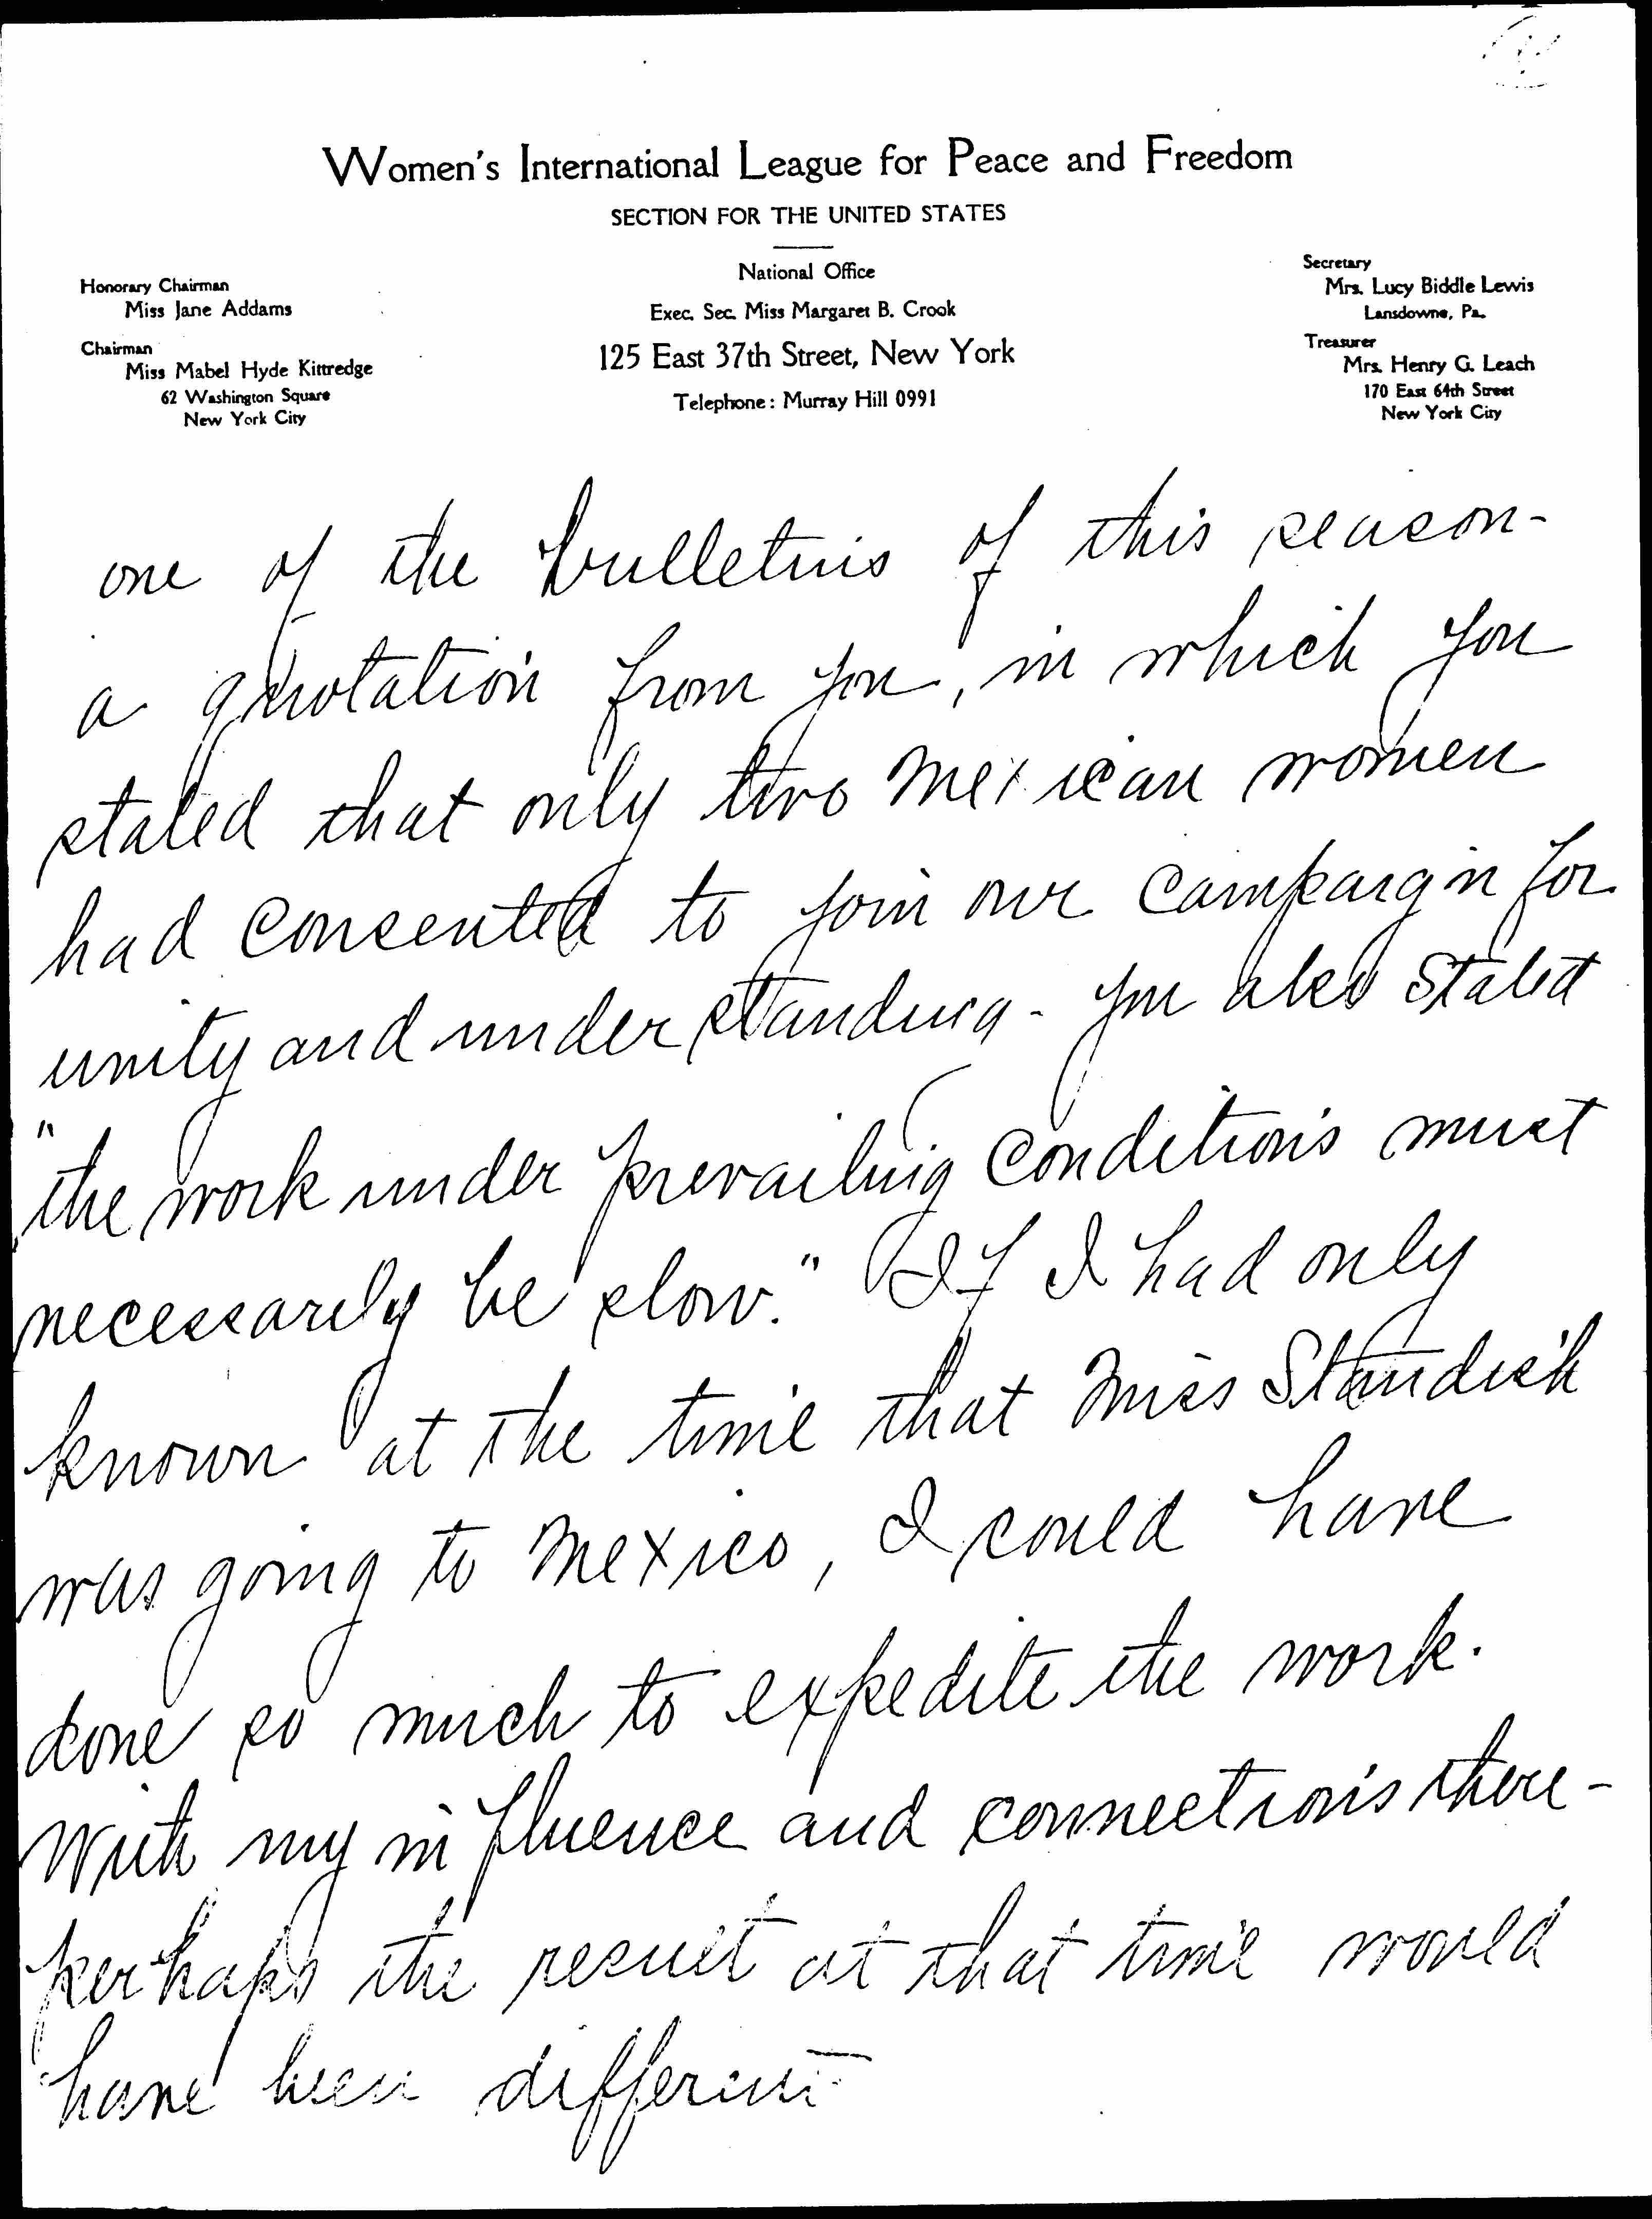 Women's International League for Peace and Freedom
SECTION FOR THE UNITED STATES
Honorary Chairman
Miss Jane Addams
Chairman
Miss Mabel Hyde Kittredge
62 Washington Square
New York City
National Office
Exec. Sec. Miss Margaret B. Crook
125 East 37th Street, New York
Telephone: Murray Hill 0991
Secretary
Mrs. Lucy Biddle Lewis
Lansdowne, Pa.
Treasurer
Mrs. Henry G. Leach
170 East 64th Street
New York City
one of the bulletins of this season-
a quotation from you, in which you
stated that only two Mexican women
had consented to join our campaign for
unity and understanding - you also stated
"the work under prevailing conditions must
necessarily be slow." If I had only
known at the time that Miss Standish
was going to Mexico, I could have
done so much to expedite the work.
With my influence and connections there-
perhaps the result at that time would
have been different-